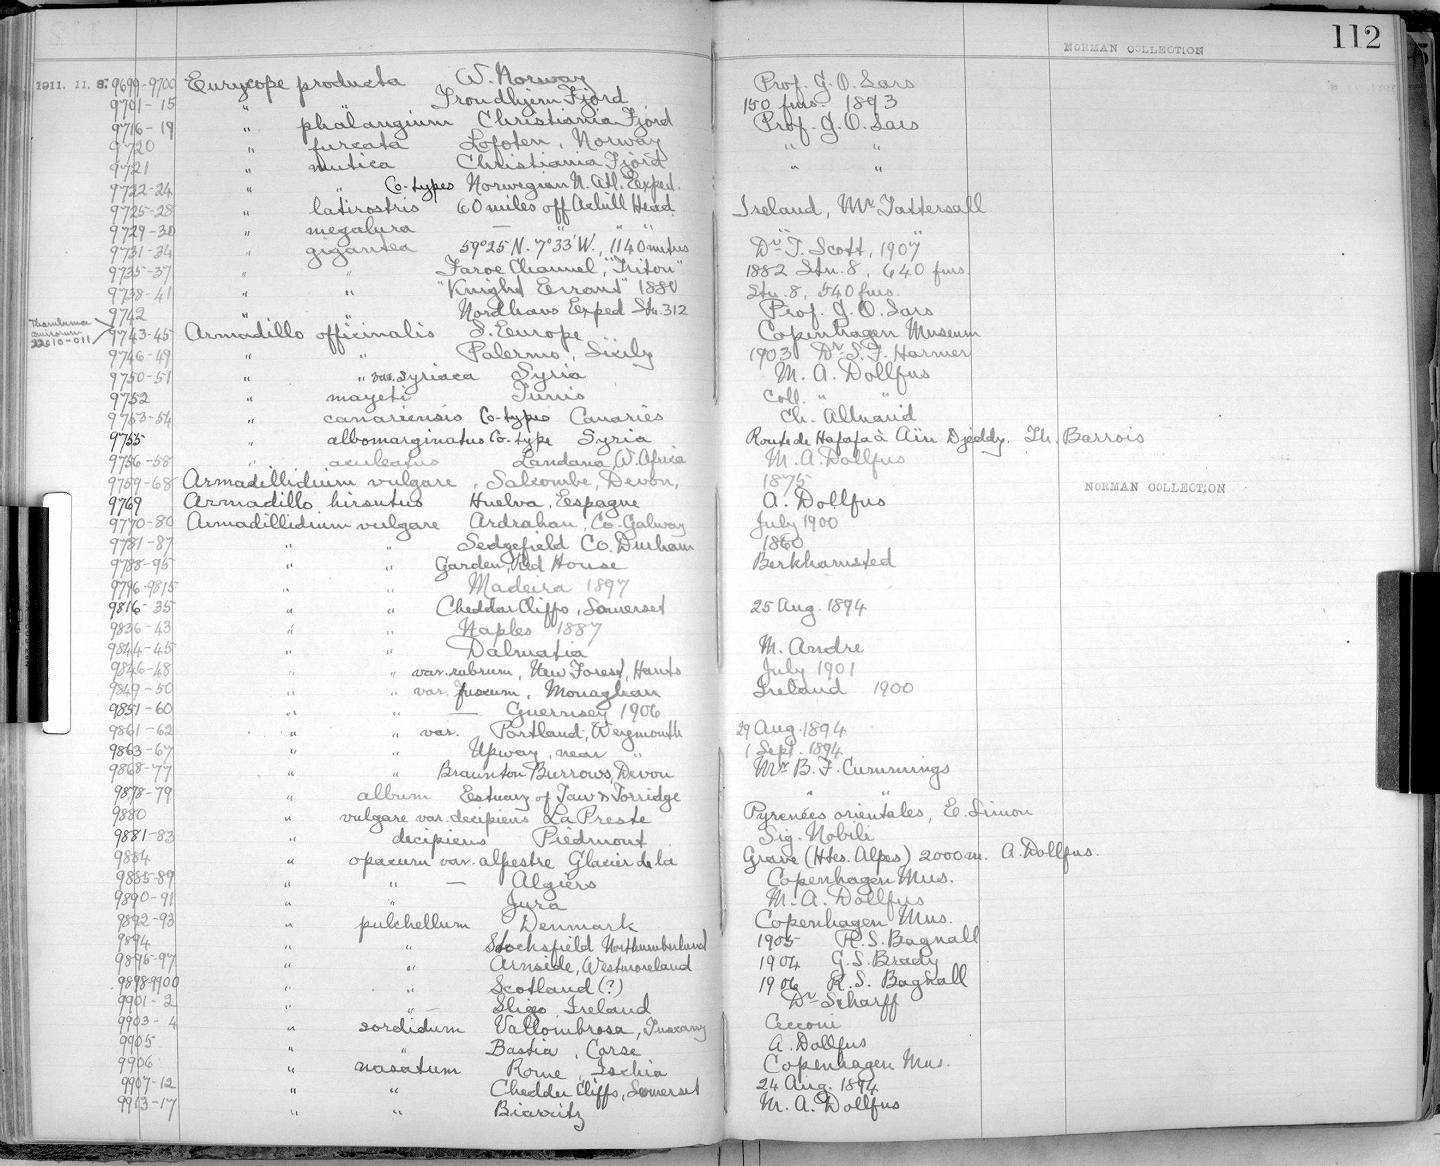 112
NORMAN COLLECTION
1911. 11. 8. 9699-9700 Eurycope producta W. Norway Prof. G. O. Sars
9701-15 " " Trondhjem Fjord 150 fms. 1893
9716-19 " phalangium Christiania Fjord Prof. G. O. Sars
9720 " furcata Lofoten, Norway " "
9721 " mutica Christiania Fjord " "
9722-24 " " Co-types Norwegian N. Atl. Exped.
9725-28 " latirostris 60 miles off Achill Head Ireland, Mr Tattersall
9729-30 " megalura — " " " " "
9731-34 " gigantea 59°25'N. 7°33'W., 1140 mtrs Dr T. Scott, 1907
9735-37 " " Faroe Channel, "Triton" 1882 Stn. 8, 640 fms.
9738-41 " " "Knight Errant" 1880 Stn. 8, 540 fms.
9742 " " Nordhavs Exped Stn. 312 Prof. G. O. Sars
9743-45 Armadillo officinalis S. Europe Copenhagen Museum
9746-49 " " Palermo, Sicily 1903 Dr S. F. Harmer
9750-51 " " var. syriaca Syria M. A. Dollfus
9752 " mayeti Tunis coll. " "
9753-54 " canariensis Co-types Canaries Ch. Alluaud
9755 " albomarginatus Co-type Syria Route de Hafafa à Aïn Djeddy. Th. Barrois
9756-58 " aculeatus Landana, W. Africa M. A. Dollfus
9759-68 Armadillidium vulgare, Salcombe, Devon, 1875 NORMAN COLLECTION
9769 Armadillo hirsutus Huelva, Espagne A. Dollfus
9770-80 Armadillidium vulgare Ardrahan, Co. Galway July 1900
9781-87 " " Sedgefield Co. Durham 1860
9788-95 " " Garden, Red House Berkhamsted
9796-9815 " " Madeira 1897
9816-35 " " Cheddar Cliffs, Somerset 25 Aug. 1894
9836-43 " " Naples 1887
9844-45 " " Dalmatia M. Andre
9846-48 " " var. rubrum, New Forest, Hants July 1901
9849-50 " " var. fuscum, Monaghan Ireland 1900
9851-60 " " — Guernsey 1906
9861-62 " " var. Portland, Weymouth 29 Aug. 1894
9863-67 " " Upway, near " 1 Sept. 1894
9868-77 " " Braunton Burrows, Devon Mr B. F. Cummings
9878-79 " album Estuary of Taw & Torridge " "
9880 " vulgare var. decipiens La Preste Pyrenées orientales, E. Simon
9881-83 " decipiens Piedmont Sig. Nobili
9884 " opacum var. alpestre Glacier de la Grave (Htes. Alpes) 2000 m. A. Dollfus.
9885-89 " " — Algiers Copenhagen Mus.
9890-91 " " Jura M. A. Dollfus
9892-93 " pulchellum Denmark Copenhagen Mus.
9894 " " Stocksfield Northumberland 1905 R. S. Bagnall
9896-97 " " Arnside, Westmoreland 1904 G. S. Brady
9898-9900 " " Scotland (?) 1906 R. S. Bagnall
9901-2 " " — Sligo, Ireland Dr Scharff
9903-4 " sordidum Vallombrosa, Tuscany Cecconi
9905 " " Bastia, Corse A. Dollfus
9906 " nasatum Rome, Ischia Copenhagen Mus.
9907-12 " " Cheddar Cliffs, Somerset 24 Aug. 1894
9913-17 " " Biarritz M. A. Dollfus